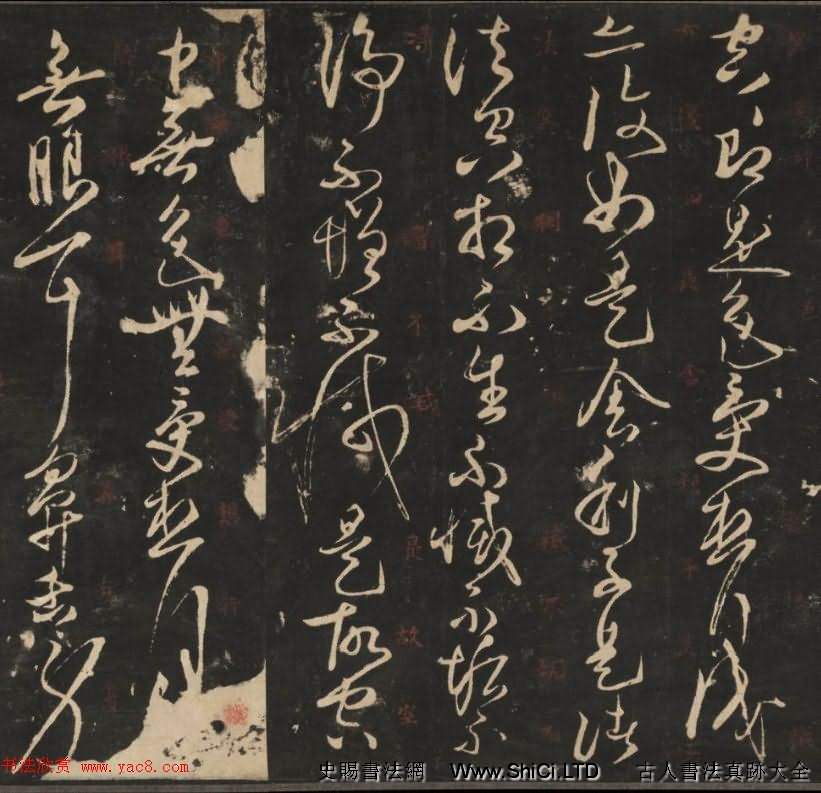 空即是色受想行識
亦復如是舍利子是諸
法空相不生不滅不垢不
淨不增不減是故空
中無色無受想行
無眼耳鼻舌身
书法欣赏 www.yac8.com
史賜書法網 Www.ShiCi.LTD 古人書法真跡大全